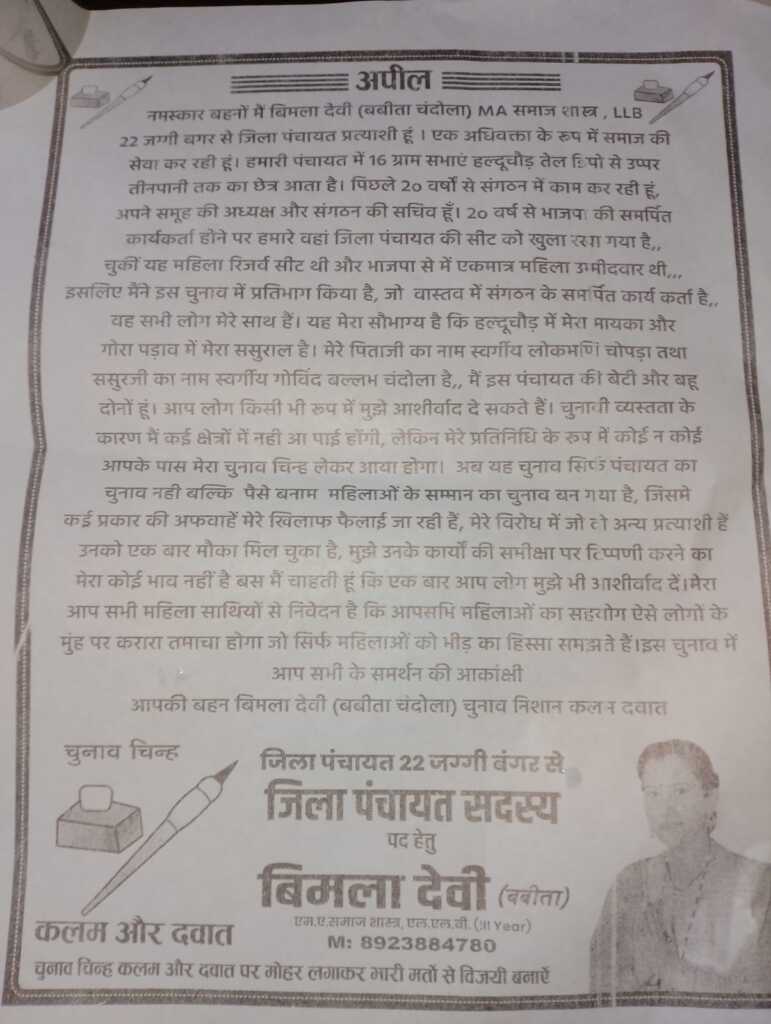 अपील
नमस्कार बहनों में बिमला देवी (बबीता चंदोला) MA समाज शास्त्र , LLB
22 जग्गी बगर से जिला पंचायत प्रत्याशी हूं । एक अधिवक्ता के रूप में समाज की
सेवा कर रही हूं। हमारी पंचायत में 16 ग्राम सभाएं हल्दूचौड़ तेल डिपो से उप्पर
तीनपानी तक का छेत्र आता है। पिछले 20 वर्षों से संगठन में काम कर रही हूं,
अपने समूह की अध्यक्ष और संगठन की सचिव हूँ। 20 वर्ष से भाजपा की समर्पित
कार्यकर्ता होने पर हमारे वहां जिला पंचायत की सीट को खुला रखा गया है,,
चुकीं यह महिला रिजर्व सीट थी और भाजपा से में एकमात्र महिला उम्मीदवार थी,,,
इसलिए मैंने इस चुनाव में प्रतिभाग किया है, जो वास्तव में संगठन के समर्पित कार्य कर्ता है,,
वह सभी लोग मेरे साथ हैं। यह मेरा सौभाग्य है कि हल्दूचौड़ में मेरा मायका और
गोरा पड़ाव में मेरा ससुराल है। मेरे पिताजी का नाम स्वर्गीय लोकभणि चोपड़ा तथा
ससुरजी का नाम स्वर्गीय गोविंद बल्लभ चंदोला है,, मैं इस पंचायत की बेटी और बहू
दोनों हूं। आप लोग किसी भी रूप में मुझे आशीर्वाद दे सकते हैं। चुनावी व्यस्तता के
कारण मैं कई क्षेत्रों में नही आ पाई होंगी, लेकिन मेरे प्रतिनिधि के रूप में कोई न कोई
आपके पास मेरा चुनाव चिन्ह लेकर आया होगा। अब यह चुनाव सिर्फ पंचायत का
चुनाव नही बल्कि पैसे बनाम महिलाओं के सम्मान का चुनाव बन गया है, जिसमे
कई प्रकार की अफवाहें मेरे खिलाफ फैलाई जा रही हैं, मेरे विरोध में जो दो अन्य प्रत्याशी हैं
उनको एक बार मौका मिल चुका है, मुझे उनके कार्यों की समीक्षा पर टिप्पणी करने का
मेरा कोई भाव नहीं है बस मैं चाहती हूं कि एक बार आप लोग मुझे भी आशीर्वाद दें।मेरा
आप सभी महिला साथियों से निवेदन है कि आपसभि महिलाओं का सहयोग ऐसे लोगों के
मुंह पर करारा तमाचा होगा जो सिर्फ महिलाओं को भीड़ का हिस्सा समझते हैं।इस चुनाव में
आप सभी के समर्थन की आकांक्षी
आपकी बहन बिमला देवी (बबीता चंदोला) चुनाव निशान कलम दवात
चुनाव चिन्ह
जिला पंचायत 22 जग्गी बंगर से
जिला पंचायत सदस्य
पद हेतु
बिमला देवी (बबीता)
एम.ए.समाज शास्त्र, एल.एल.बी. (III Year)
M: 8923884780
कलम और दवात
चुनाव चिन्ह कलम और दवात पर मोहर लगाकर भारी मतों से विजयी बनाऐं